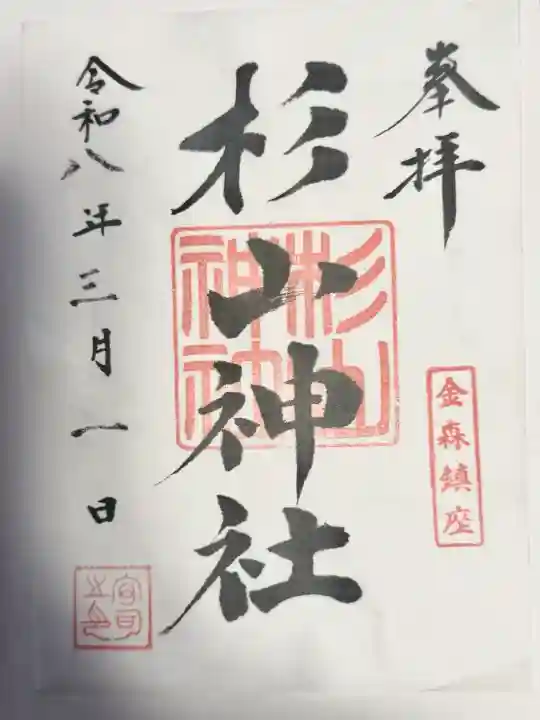 奉拝
金森鎮座
杉山神社
杉山神社
令和八年三月一日
宮司之印